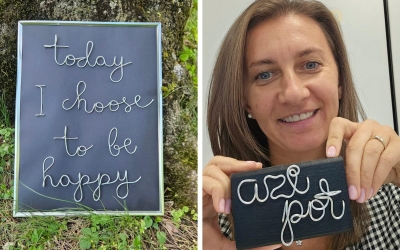 today
I choose
to be
happy
aze
pot